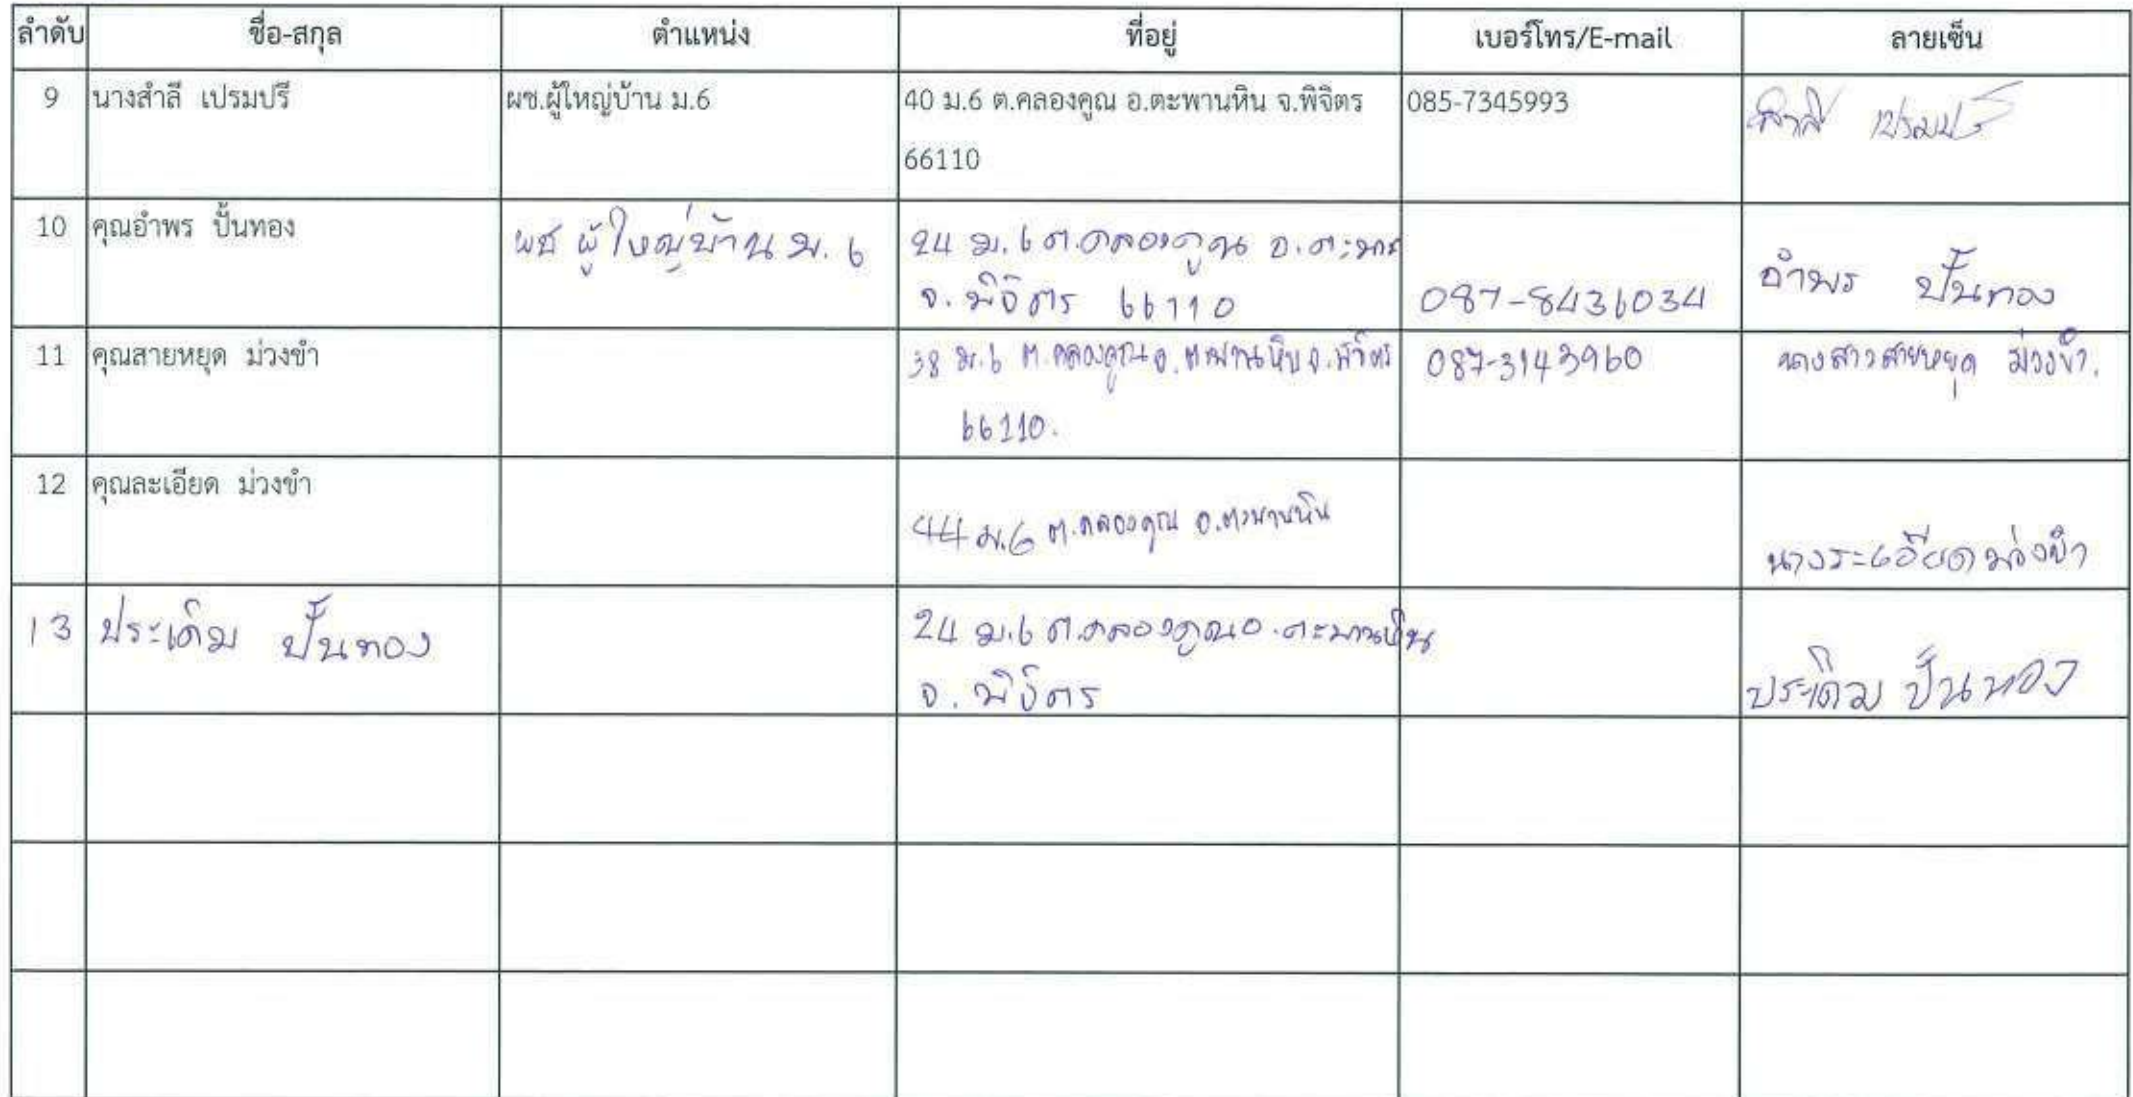 ลำดับ ชื่อ-สกุล ตำแหน่ง ที่อยู่ เบอร์โทร/E-mail ลายเซ็น
9 นางสำลี เปรมปรี ผช.ผู้ใหญ่บ้าน ม.6 40 ม.6 ต.คลองคูณ อ.ตะพานหิน จ.พิจิตร 085-7345993 สำลี เปรมปรี
66110
10 คุณอำพร ปั้นทอง ผช ผู้ใหญ่บ้าน ม. 6 24 ม. 6 ต.คลองคูณ อ.ตะพาน
จ. พิจิตร 66110 087-8436034 อำพร ปั้นทอง
11 คุณสายหยุด ม่วงขำ 38 ม.6 ต.คลองคูณ อ.ตะพานหิน จ.พิจิตร 087-3143960 นางสาวสายหยุด ม่วงขำ.
66110.
12 คุณละเอียด ม่วงขำ
44 ม.6 ต.คลองคูณ อ.ตะพานหิน
นางระเอียด ม่วงขำ
13 ประเดิม ปั้นทอง 24 ม.6 ต.คลองคูณ อ.ตะพานหิน
จ. พิจิตร ประเดิม ปั้นทอง